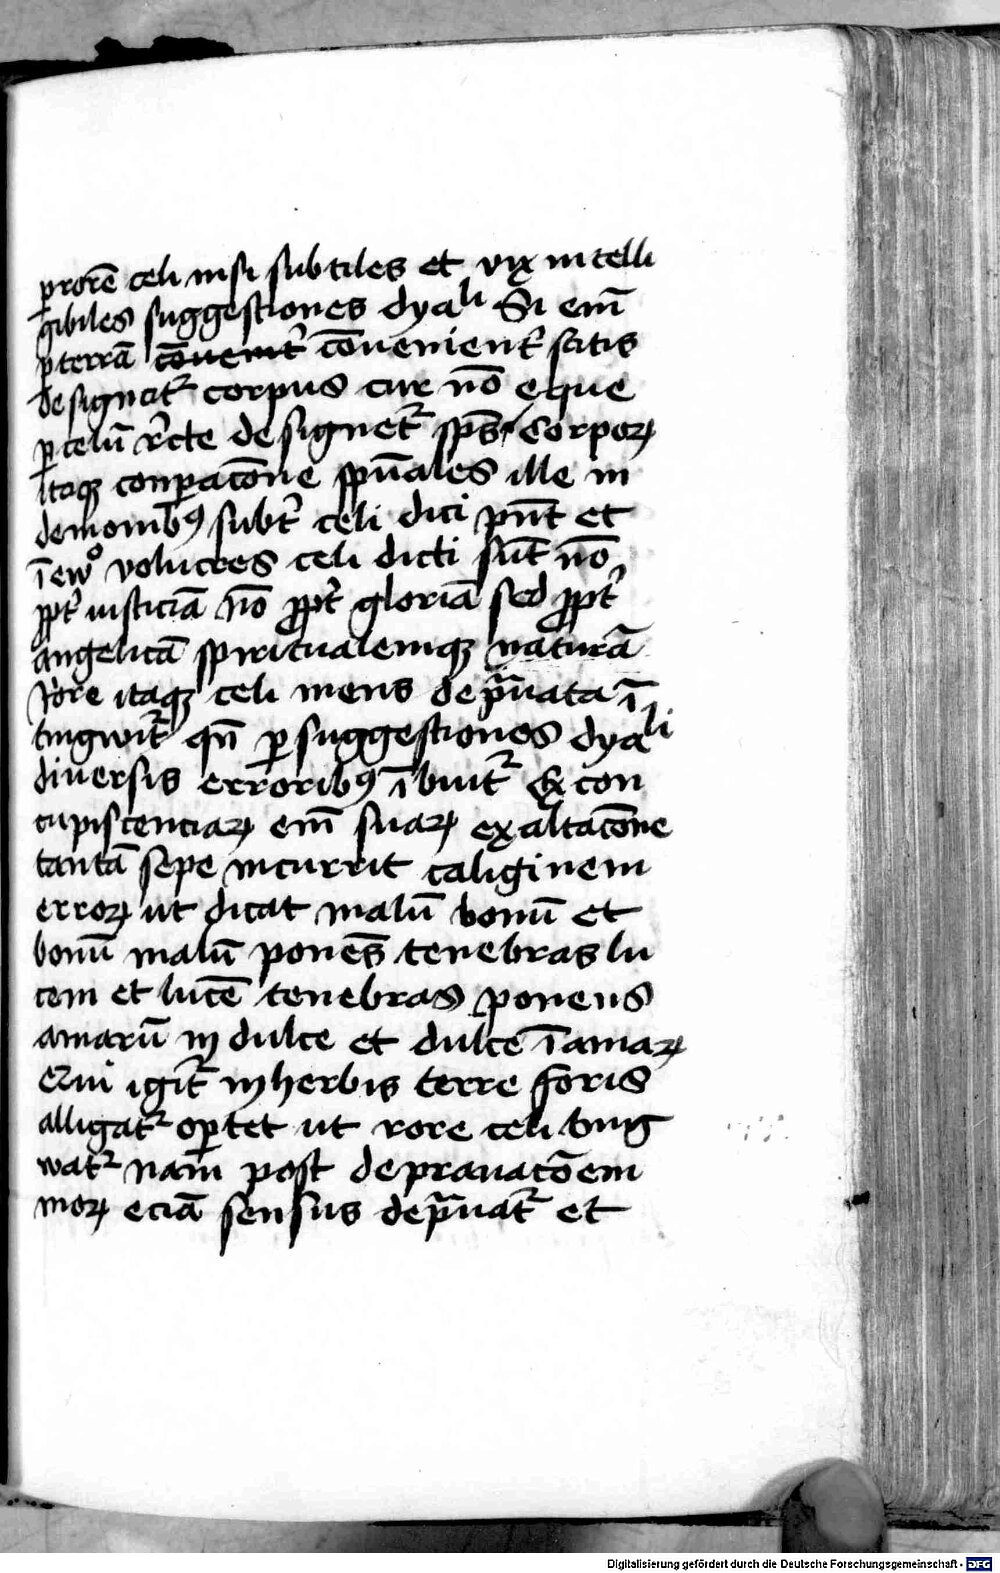 ꝑ rorē celi nisi subtiles et vix intelli
gibiles suggestiones dyali Si eīm
ꝑ terrā cōuenīt cōuenient satis
designat corpus cur nō eque
ꝑ celū rcte designet sps Corpoꝝ
itaqꝫ conꝑacōne spūales ille in
demonibꝰ subt celi dici pn̄t et
ī ewo volucres celi dicti sūt nō
ꝓpt iusticiā nō ꝓpt gloriā sed ꝓpt
angelicā spiritualemqꝫ naturā
Rore itaqꝫ celi mens deprauata ī
tingwit qn̄ ꝑ suggestiones dyali
diuersis erroribꝰ ī buit Ex con
cupiscenciaꝝ eīm suaꝝ exaltacōne
tantā sepe incurrit caliginem
erroꝝ ut dicat malū bonū et
bonū malū ponēs tenebras lu
cem et lucē tenebras ponens
amarū in dulce et dulce ī amaꝝ
igit in herbis terre foris
alligat oꝑtet ut rore celi ting
wat nam post deprauacōem
moꝝ eciā sensus deprauat et
Digitalisierung gefördert durch die Deutsche Forschungsgemeinschaft - DFG